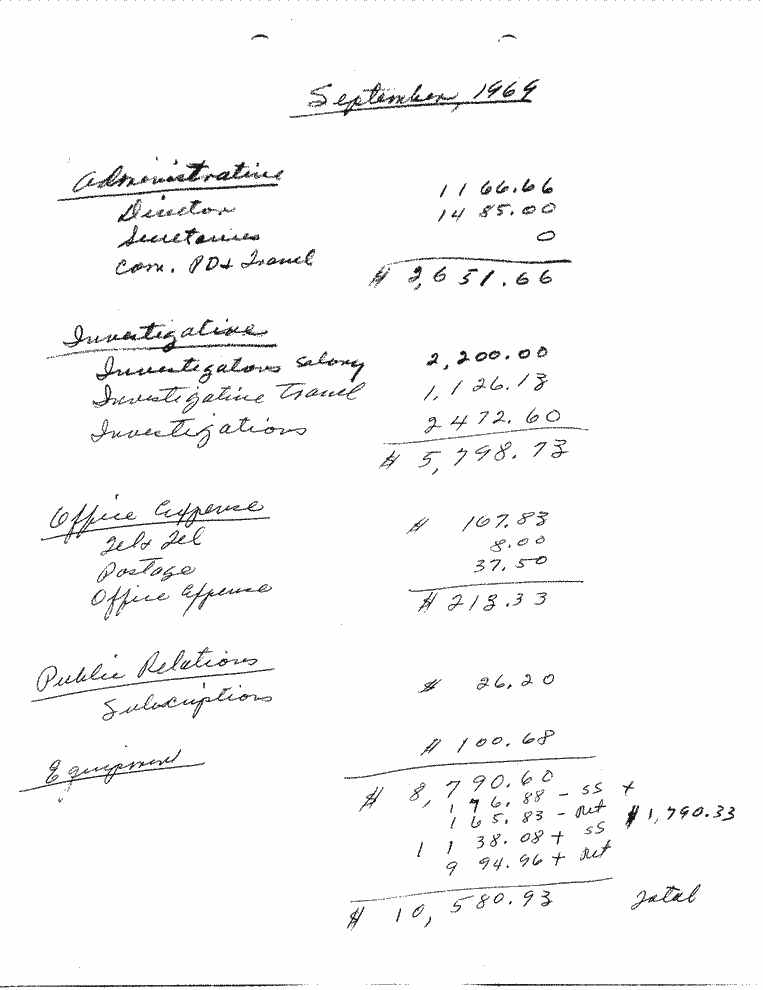 September, 1969
Administrative
Director 1166.66
Secretaries 1485.00
Com. PD & Travel 0
$ 2,651.66
Investigative
Investigators Salary 2,200.00
Investigative Travel 1,126.13
Investigations 2472.60
$ 5,798.73
Office Expense
Tel & Tel $ 167.83
Postage 8.00
Office Expense 37.50
$ 213.33
Public Relations
Subscriptions $ 26.20
Equipment $ 100.68
$ 8,790.60
176.88 - SS +
165.83 - Ret $1,790.33
1138.08 + SS
994.96 + Ret
$ 10,580.93 Total